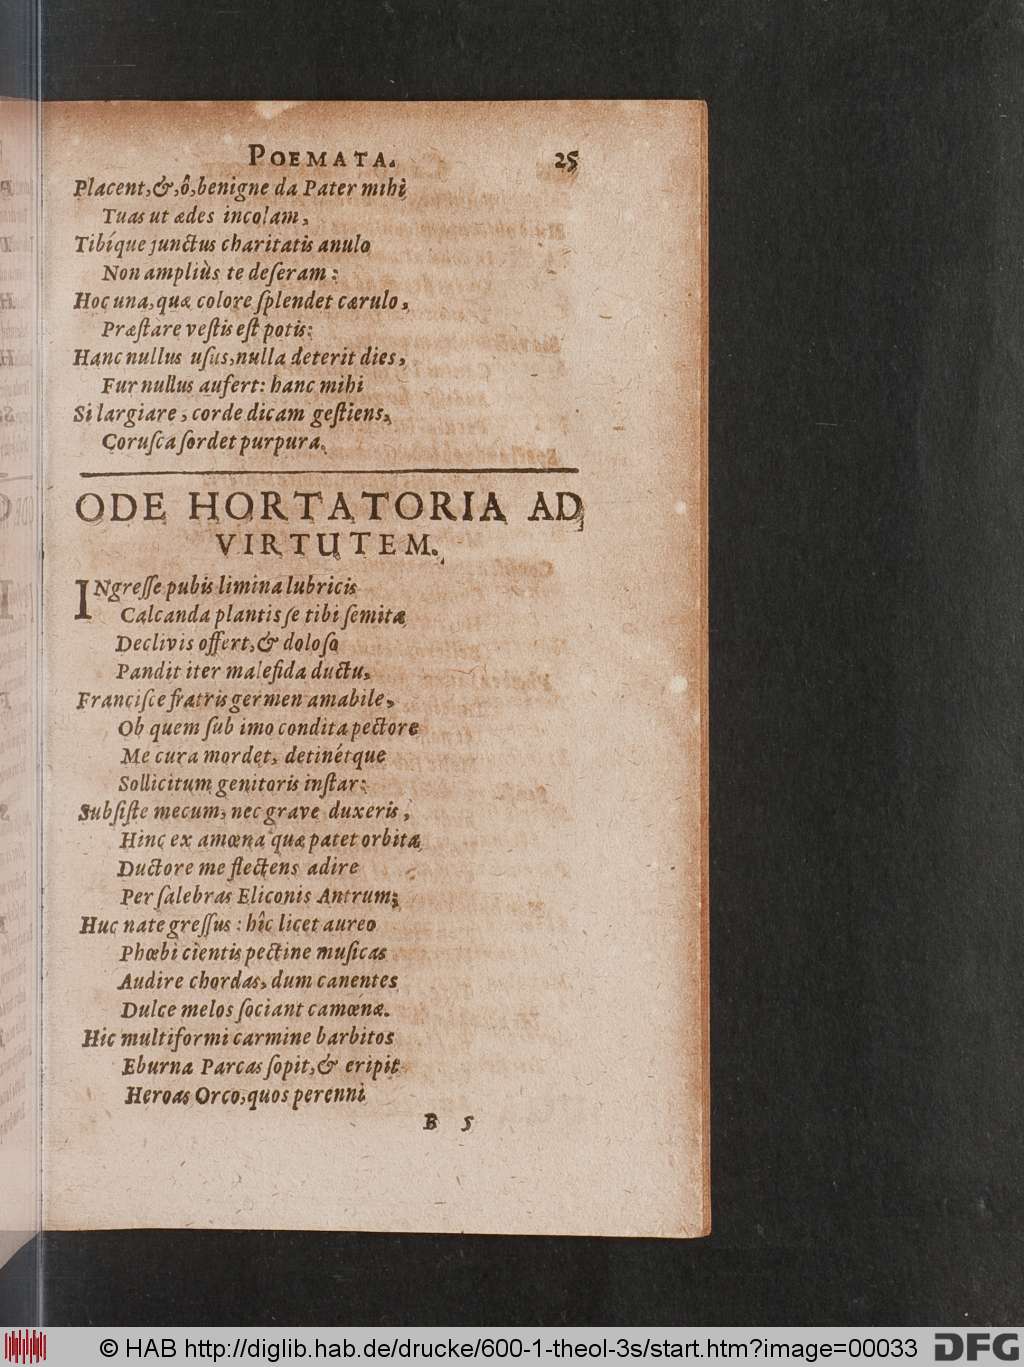 POEMATA. 25
Placent,&,ô,benigne da Pater mihi
Tuas ut ædes incolam,
Tibíque junctus charitatis anulo
Non ampliùs te deseram:
Hoc una,quæ colore splendet cærulo,
Præstare vestis est potis:
Hanc nullus usus,nulla deterit dies,
Fur nullus aufert: hanc mihi
Si largiare, corde dicam gestiens,
Corusca sordet purpura.
ODE HORTATORIA AD
VIRTUTEM.
INgresse pubis limina lubricis
Calcanda plantis se tibi semitæ
Declivis offert,& dolosa
Pandit iter malefida ductu,
Francisce fratris germen amabile,
Ob quem sub imo condita pectore
Me cura mordet, detinétque
Sollicitum genitoris instar:
Subsiste mecum, nec grave duxeris,
Hinc ex amœna quæ patet orbita
Ductore me flectens adire
Per salebras Eliconis Antrum;
Huc nate gressus: hîc licet aureo
Phœbi cientis pectine musicas
Audire chordas, dum canentes
Dulce melos sociant camœnæ.
Hic multiformi carmine barbitos
Eburna Parcas sopit,& eripit
Heroas Orco,quos perenni
B 5
© HAB http://diglib.hab.de/drucke/600-1-theol-3s/start.htm?image=00033
DFG